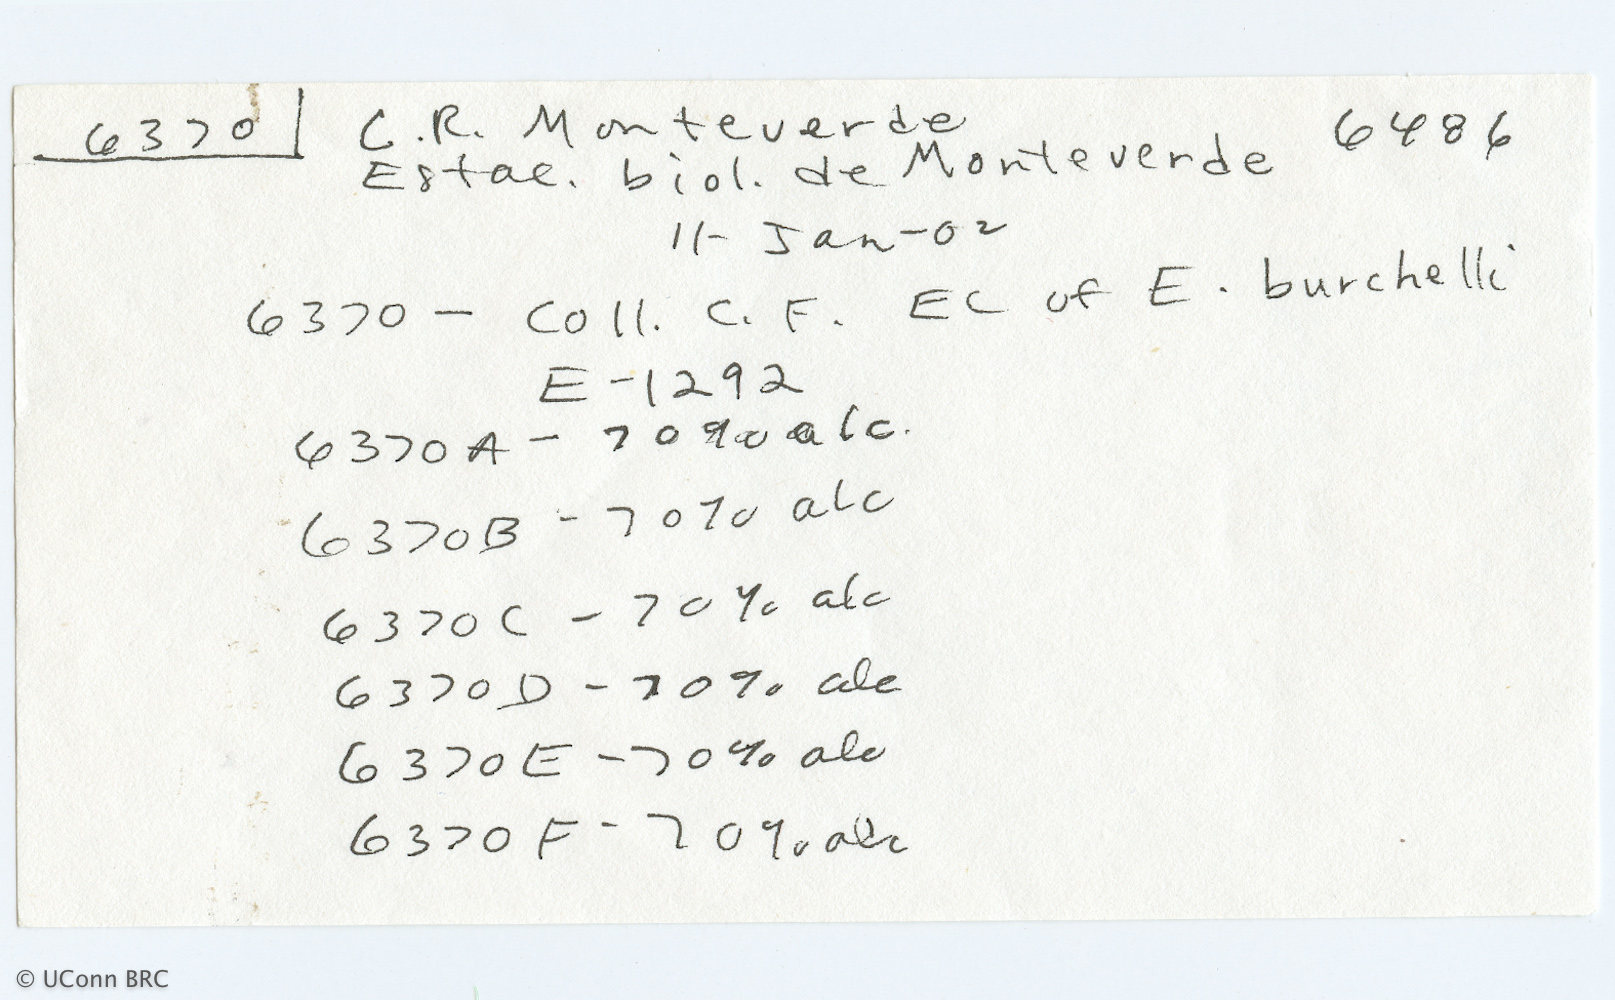 6370 C.R. Monteverde 6486
Estac. biol. de Monteverde
11-Jan-02
6370 - Coll. C.F. EC of E. burchelli
E-1292
6370A - 70% alc.
6370B - 70% alc
6370C - 70% alc
6370D - 70% alc
6370E - 70% alc
6370F - 70% alc
© UConn BRC